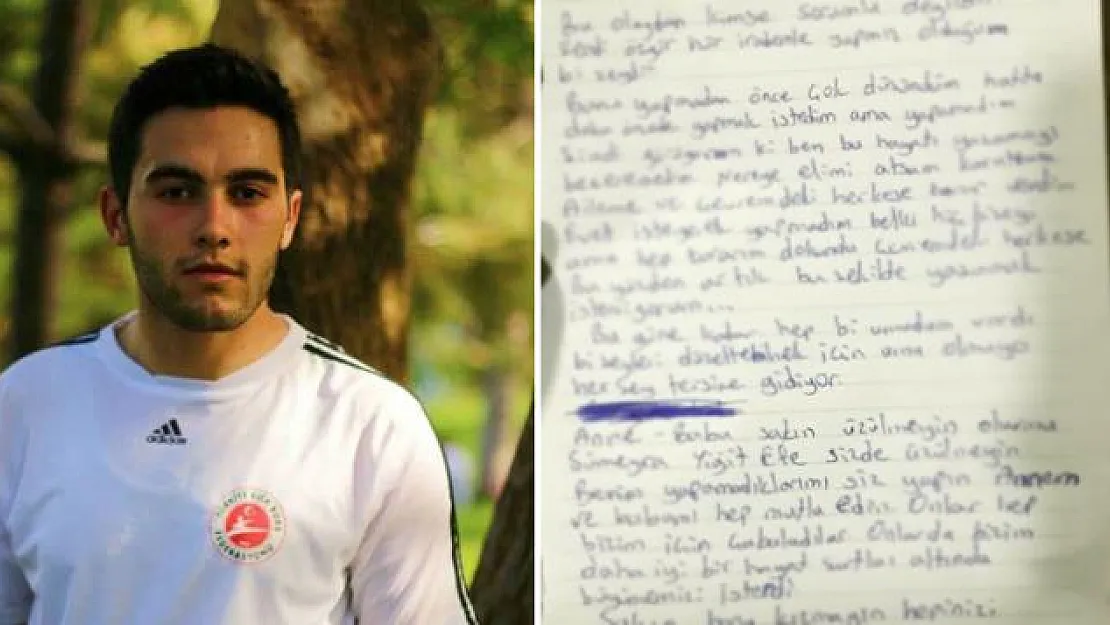 adidas
FEDERASYONU
Bu olaydan kimse sorumlu değildir
özgür hür irademle yapmış olduğum
bi şeydir
Bunu yapmadan önce çok düşündüm hatta
daha önce yapmak istedim ama yapamadım
ki ben bu hayatı yaşamayı
beceremedim nereye elimi atsam
Aileme ve çevremdeki herkese zarar verdim
Evet isteyerek yapmadım belki hiç bizeyi
ama hep zararım dokundu çevremdeki herkese
Bu yüzden artık bu şekilde yaşamak
istemiyorum...
Bu güne kadar hep bi umudum vardı
bi şeyleri düzeltebilmek için ama olmuyor
her şey tersine gidiyor.
Anne - Baba sakın üzülmeyin olurmu
Sümeyra Yiğit Efe sizde üzülmeyin
Benim yapamadıklarımı siz yapın Annem
ve babamı hep mutlu edin Onlar hep
bizim için çabaladılar Onlarda bizim
daha iyi bir hayat şartları altında
büyümemizi istedi
Sakın bana kızmayın hepinizi